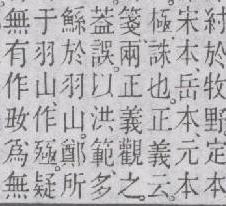 紂於牧野定本
宋本岳本元本
極誅也正義云
箋兩正義觀之
葢誤以洪範多
鯀於羽山鄭所
于羽山作殛疑
無有作為無